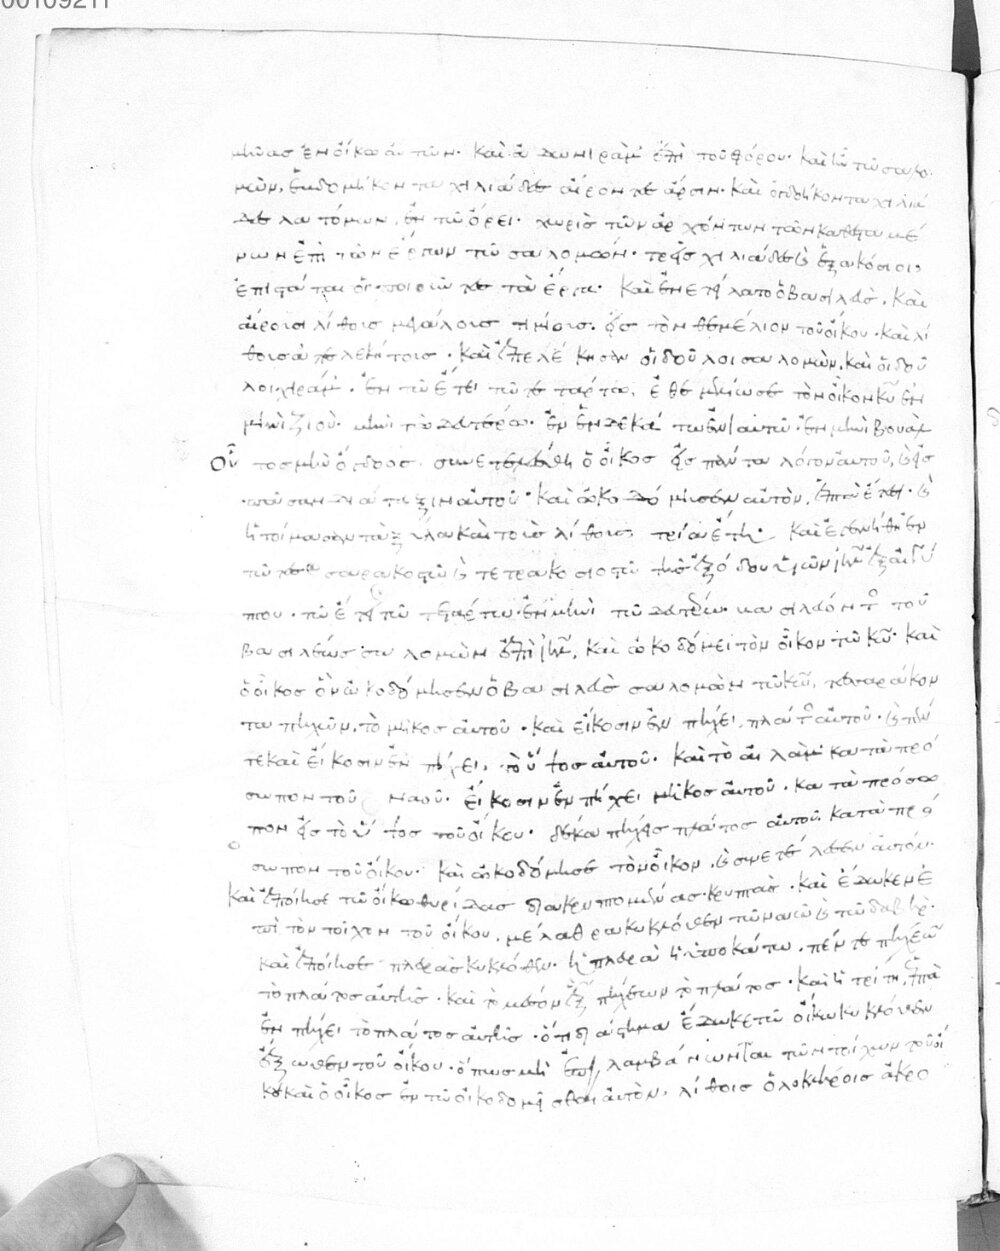 00109211
μῆνας ἐν οἴκω αὐτῶν· καὶ ἀδωνιράμ ἐπὶ τοῦ φόρου· καὶ ἦν τῶ σαλο
μών, ἑβδομήκοντα χιλιάδες αἴροντες ἄρσιν· καὶ ὀγδοήκοντα χιλιά
δες λατόμων, ἐν τῶ ὄρει· χωρὶς τῶν ἀρχόντων τῶν καθεσταμέ
νων ἐπὶ τῶν ἔργων τῶ σαλομών· τρεῖς χιλιάδες καὶ ἑξακόσιοι,
ἐπιστάται οἱ ποιοῦντες τὰ ἔργα· καὶ ἐνετείλατο ὁ βασιλεὺς, καὶ
αἴρουσι λίθους μεγάλους τιμίους· εἰς τὸν θεμέλιον τοῦ οἴκου· καὶ λί
θους ἀπελεκήτους· καὶ ἐπελέκησαν οἱ δοῦλοι σαλομών, καὶ οἱ δοῦ
λοι χιράμ· ἐν τῶ ἔτει τῶ τετάρτω, ἐθεμελίωσε τὸν οἶκον κυ ἐν
μηνὶ ζιοὺ· μηνὶ τῶ δευτέρω· ἐν ἑνδεκάτω ἐνιαυτῶ· ἐν μηνὶ βουὰλ
οὗτος μὴν ὄγδοος· συνετελέσθη ὁ οἶκος εἰς πάντα λόγον αὐτοῦ, καὶ εἰς
πᾶσαν διάταξιν αὐτοῦ· καὶ ὠκοδόμησεν αὐτὸν, ἑπτὰ ἔτη· καὶ
ἡτοίμασαν τὰ ξύλα καὶ τοὺς λίθους τρία ἔτη· καὶ ἐγενήθη ἐν
τῶ τεσσαρακοστῶ καὶ τετρακοσιοστῶ τῆς ἐξόδου υἱῶν ιηλ ἐξ αἰγύ
πτου· τῶ ἔτει τῶ τετάρτω· ἐν μηνὶ τῶ δευτέρω βασιλεύοντος τοῦ
βασιλέως σαλομὼν ἐπὶ ιηλ, καὶ ὠκοδόμει τὸν οἶκον τῶ κω· καὶ
ὁ οἶκος ὃν ὠκοδόμησεν ὁ βασιλεὺς σαλομὼν τῶ κω, τεσσαράκον
τα πηχῶν, τὸ μῆκος αὐτοῦ· καὶ εἴκοσι ἐν πήχει, πλάτος αὐτοῦ· καὶ πέν
τε καὶ εἴκοσιν ἐν πήχει, τὸ ὕψος αὐτοῦ· καὶ τὸ αἰλὰμ κατὰ πρό
σωπον τοῦ ναοῦ· εἴκοσιν ἐν πήχει μῆκος αὐτοῦ· κατὰ πρόσω
πον εἰς τὸ ὕψος τοῦ οἴκου· δέκα πήχεις πλάτος αὐτοῦ. κατὰ πρό
σωπον τοῦ οἴκου· καὶ ὠκοδόμησε τὸν οἶκον, καὶ συνετέλεσεν αὐτόν·
καὶ ἐποίησε τῶ οἴκω θυρίδας διακρυπτομένας κρυπτὰς· καὶ ἔδωκεν ἐ
πὶ τὸν τοῖχον τοῦ οἴκου, μέλαθρα κυκλόθεν τῶ ναῶ καὶ τῶ δαβήρ·
καὶ ἐποίησε πλευρὰς κυκλόθεν· ἡ πλευρὰ ἡ ὑποκάτω, πέντε πήχεων
τὸ πλάτος αὐτῆς· καὶ τὸ μέσον ἓξ πήχεων τὸ πλάτος· καὶ ἡ τρίτη, ἑπτὰ
ἐν πήχει τὸ πλάτος αὐτῆς· ὅτι διάστημα ἔδωκε τῶ οἴκω κυκλόθεν
ἔξωθεν τοῦ οἴκου· ὅπως μὴ ἐπιλαμβάνωνται τῶν τοίχων τοῦ οἴ
κου καὶ ὁ οἶκος ἐν τῶ οἰκοδομεῖσθαι αὐτὸν, λίθοις ὁλοκλήροις ἀκρο